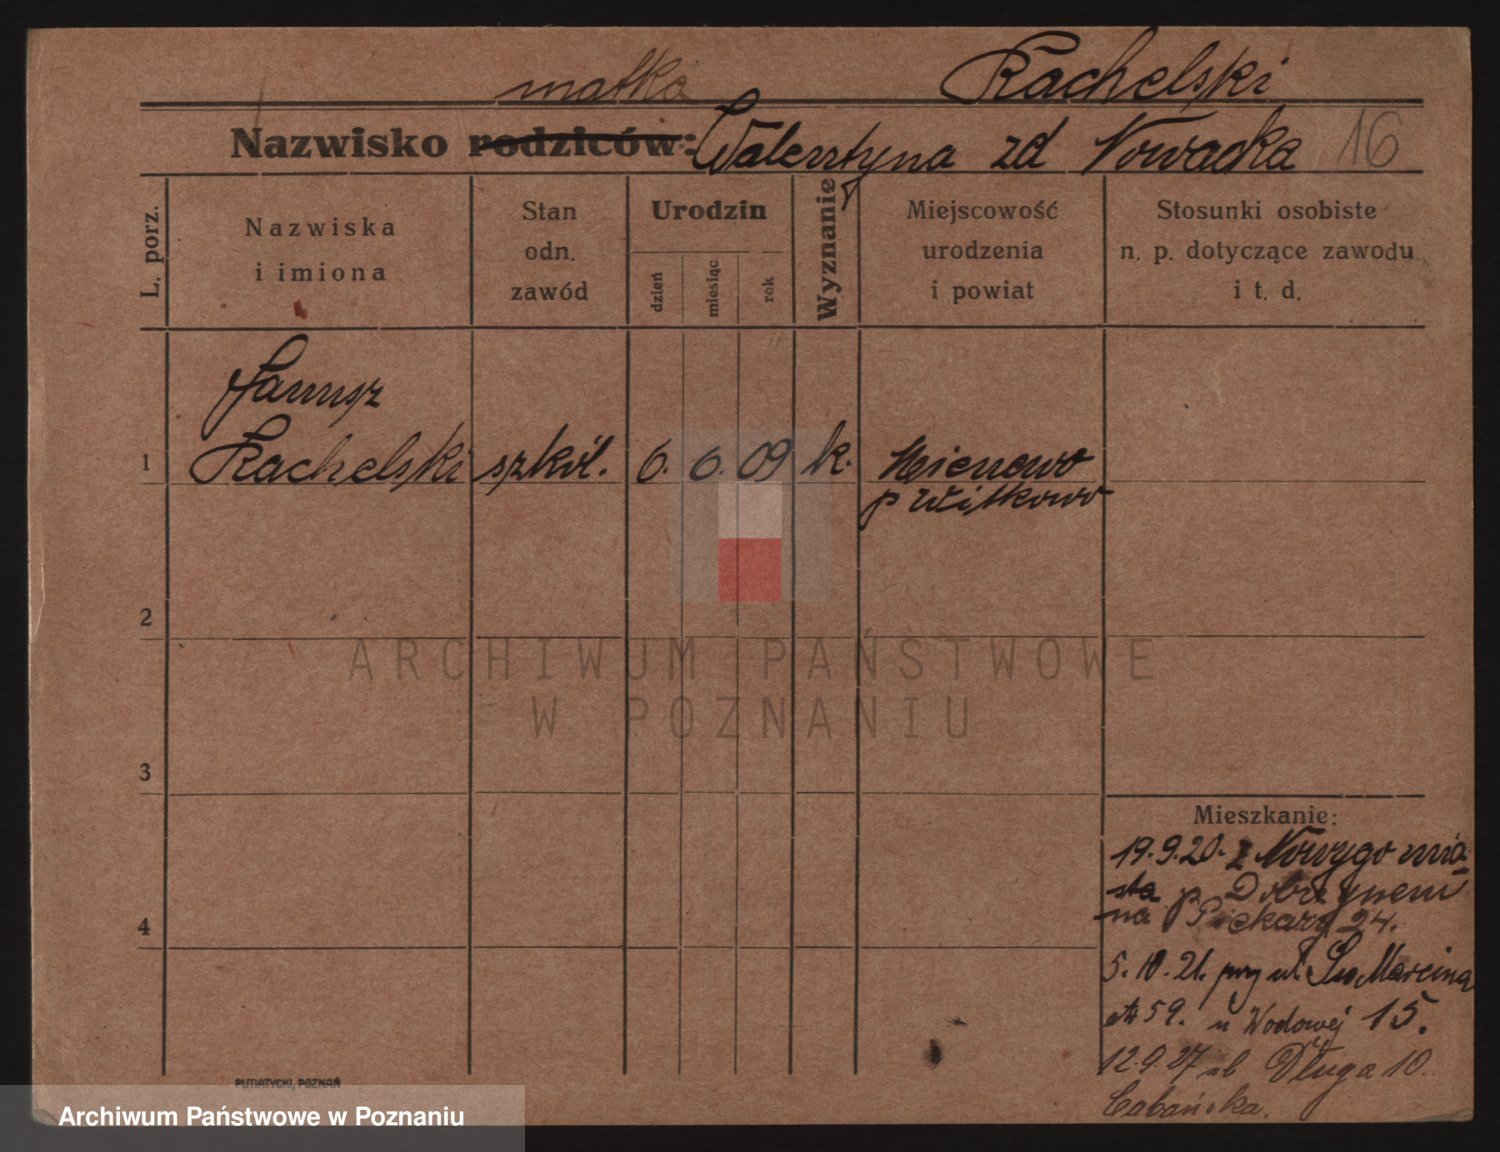 matka Rachelski
Nazwisko rodziców: Walerstyna zd Nowacka 16
L. porz.
Nazwiska
i imiona
Stan
odn.
zawód
Urodzin
dzień
miesiąc
rok
Wyznanie
Miejscowość
urodzenia
i powiat
Stosunki osobiste
n. p. dotyczące zawodu
i t. d.
Janusz
1 Rachelski szkol. 6. 6. 09 k.
p Witkowo
2
ARCHIWUM PAŃSTWOWE
W POZNANIU
3
Mieszkanie:
19.9.20. z Nowygo mia
sta p. Dobrzynem
na Piekary 24.
4
5.10.21. przy ul. Św Marcina
59. u Wodowej 15.
12.9.27 ul Długa 10.
Cabańska.
PUTIATYCKI, POZNAŃ
Archiwum Państwowe w Poznaniu